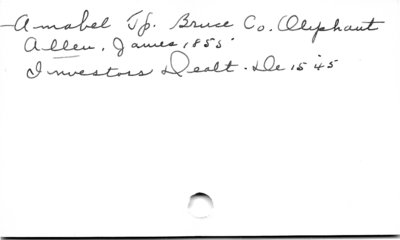 Amabel Tp. Bruce Co. Oliphant
Allen, James, 1855
Investors Dealt. De 15 '45